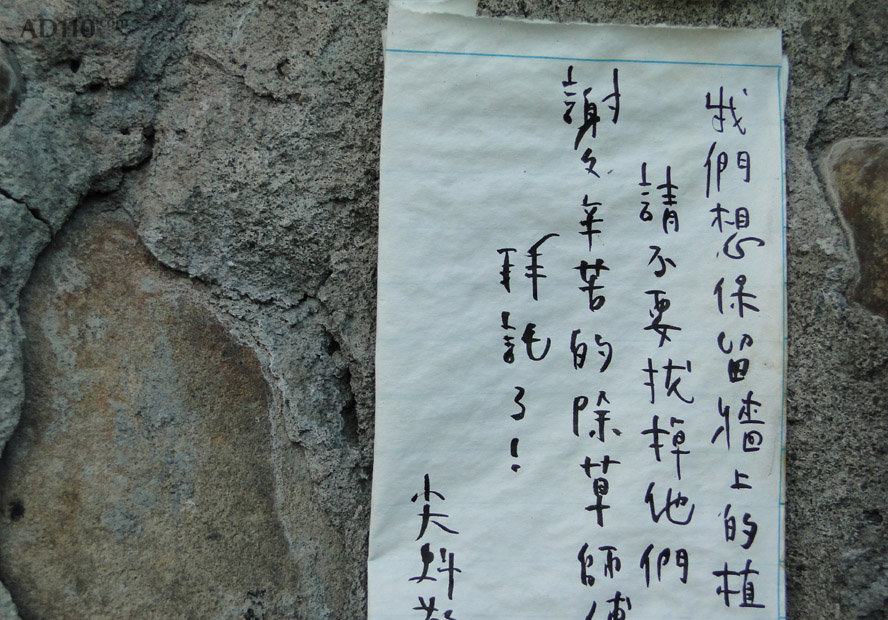 我們想保留牆上的植
請不要拔掉他們
謝文辛苦的除草師傅
拜託了！
尖蚪
AD110